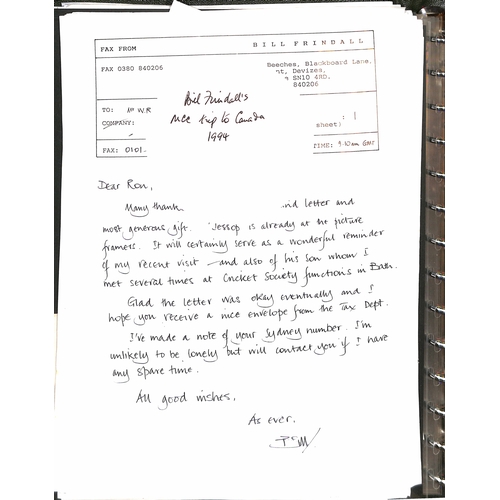 FAX FROM BILL FRINDALL
FAX 0380 840206
Beeches, Blackboard Lane,
nt, Devizes,
SN10 4RD.
840206
TO: Mr W.R
COMPANY:
Bill Frindall's
nice trip to Canada
1994
: 1
sheet)
FAX: 0101.
TIME: 9.10am GMT
Dear Ron,
Many thank nd letter and
most generous gift. Jessop is already at the picture
framers. It will certainly serve as a wonderful reminder
of my recent visit – and also of his son whom I
met several times at Cricket Society functions in Bath.
Glad the letter was okay eventually and I
hope you receive a nice envelope from the Tax Dept.
I've made a note of your Sydney number. I'm
unlikely to be lonely but will contact you if I have
any spare time.
All good wishes,
As ever,